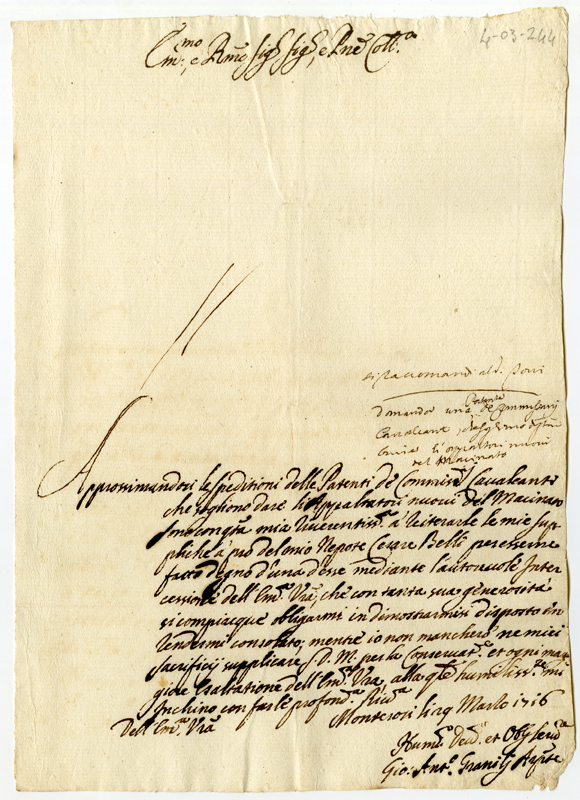 4-03-244
Em.mo, e Rmo Sig.r Sig.r, e Pne Coll.o
si raccomandi al S.
Domanda una Patente de Commissarij
Cavalcanti, che
li appaltatori nuovi
del Macinato
Approssimandosi le speditioni delle Patenti de Commiss.rij Cavalcanti
che sogliono dare li Appaltatori nuovi del Macinato
con q.ta mia riverentiss.a à reiterarle le mie sup
pliche à prò del mio Nepote Cesare Belli per esserne
fatto degno d'una d'esse mediante l'autorevole Inter
cessione dell'Em.a Vra, che con tanta sua generosità
si compiacque obligarmi in dimostrarmisi disposto in
rendermi consolato; mentre io non mancherò ne miei
Sacrificij supplicare S. D. M. per la Conservat.e, et ogni mag
giore Esaltatione dell'Em.a Vra, alla q.le humiliss.te mi
Inchino con farle profond.a Riv.a
Dell'Em.a Vra
Monterosi li 29 Marzo 1716
Humil. Dev. et Obl Serv.e
Gio: Ant.o